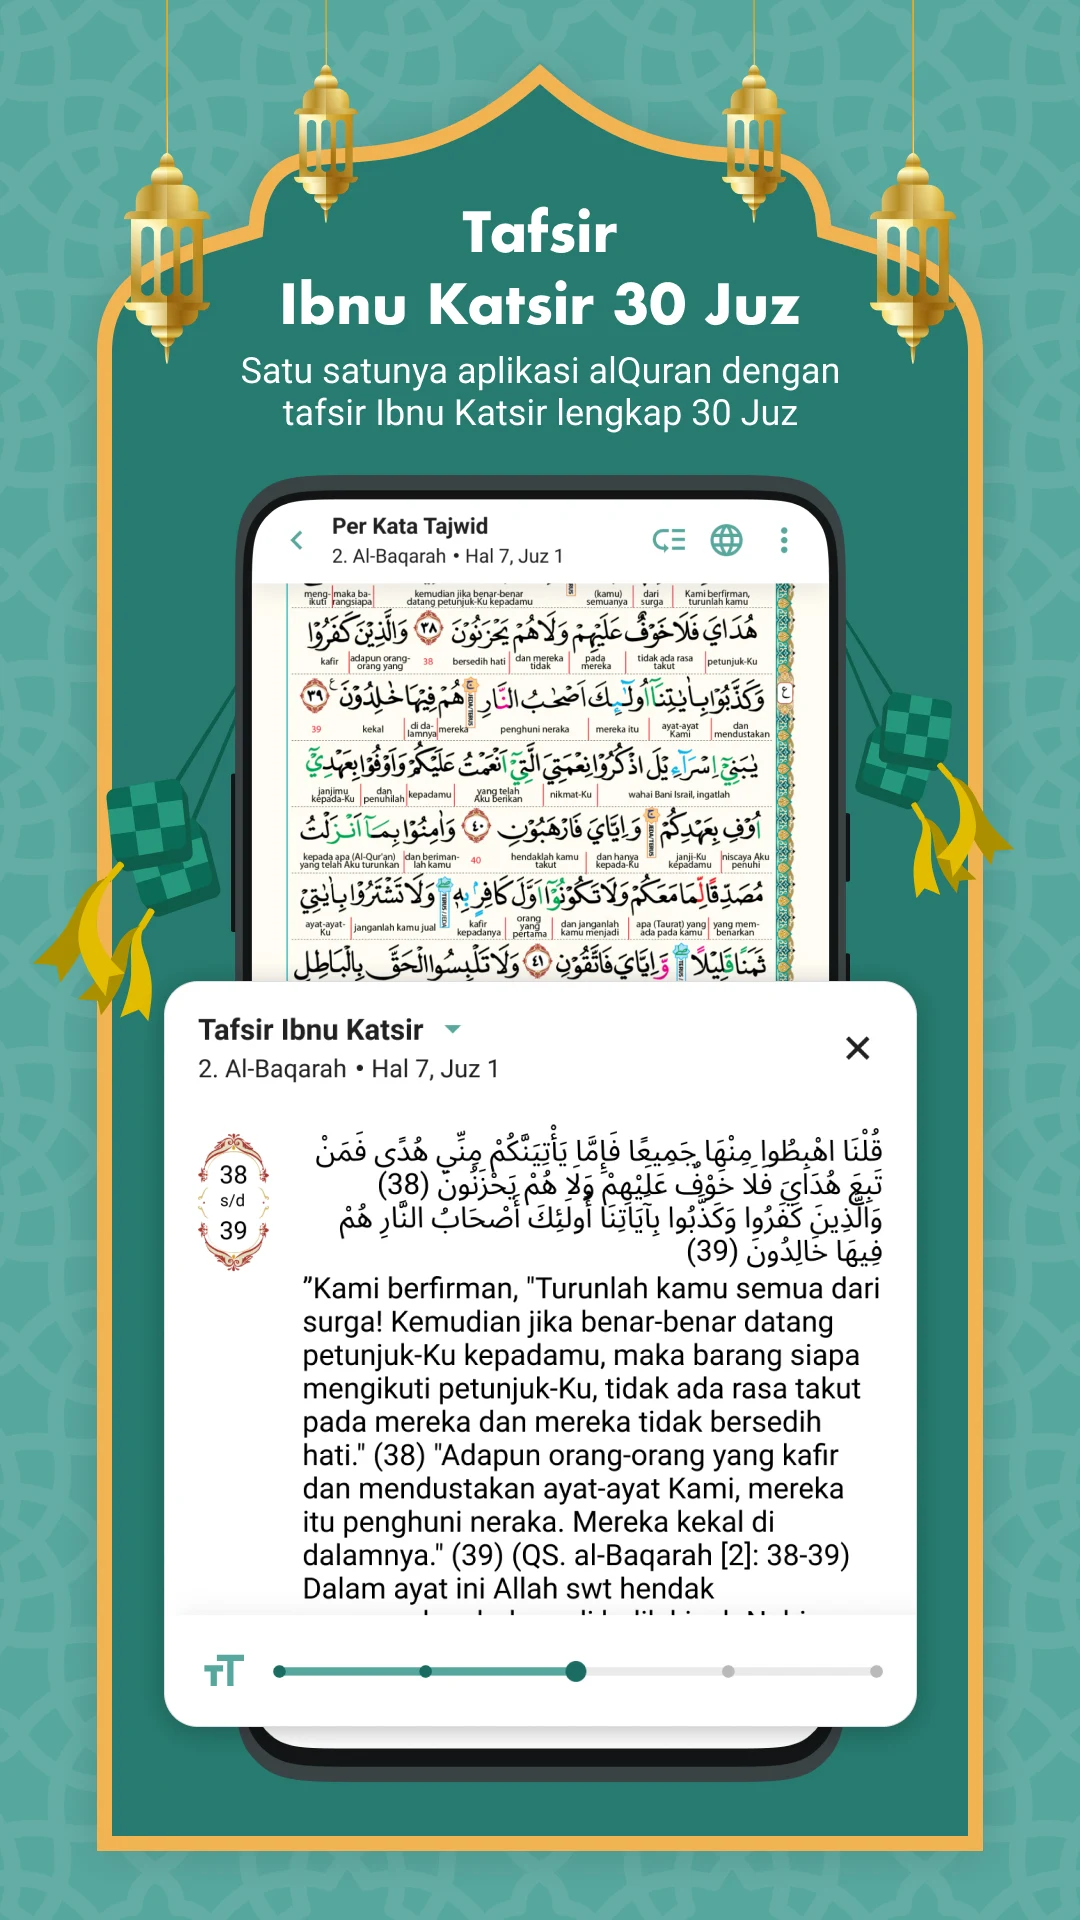 Tafsir
Ibnu Katsir 30 Juz
Satu satunya aplikasi alQuran dengan
tafsir Ibnu Katsir lengkap 30 Juz
Per Kata Tajwid
2. Al-Baqarah • Hal 7, Juz 1
meng-ikuti maka ba-rangsiapa kemudian jika benar-benar datang petunjuk-Ku kepadamu (kamu) semuanya dari surga Kami berfirman, turunlah kamu
هُدَايَ فَلَا خَوْفٌ عَلَيْهِمْ وَلَا هُمْ يَحْزَنُوْنَ ٣٨ وَالَّذِيْنَ كَفَرُوْا
kafir adapun orang-orang yang 38 bersedih hati dan mereka tidak pada mereka tidak ada rasa takut petunjuk-Ku
وَكَذَّبُوْا بِاٰيٰتِنَآ اُولٰۤىِٕكَ اَصْحٰبُ النَّارِ هُمْ فِيْهَا خٰلِدُوْنَ ٣٩ ع
39 kekal di da-lamnya mereka penghuni neraka mereka itu ayat-ayat Kami dan mendustakan
يٰبَنِيْٓ اِسْرَاۤءِيْلَ اذْكُرُوْا نِعْمَتِيَ الَّتِيْٓ اَنْعَمْتُ عَلَيْكُمْ وَاَوْفُوْا بِعَهْدِيْٓ
janjimu kepada-Ku dan penuhilah kepadamu yang telah Aku berikan nikmat-Ku wahai Bani Israil, ingatlah
اُوْفِ بِعَهْدِكُمْ وَاِيَّايَ فَارْهَبُوْنِ ٤٠ وَاٰمِنُوْا بِمَآ اَنْزَلْتُ
kepada apa (Al-Qur'an) yang telah Aku turunkan dan beriman-lah kamu 40 hendaklah kamu takut dan hanya kepada-Ku janji-Ku kepadamu niscaya Aku penuhi
مُصَدِّقًا لِّمَا مَعَكُمْ وَلَا تَكُوْنُوْٓا اَوَّلَ كَافِرٍۢ بِهٖ وَلَا تَشْتَرُوْا بِاٰيٰتِيْ
ayat-ayat-Ku janganlah kamu jual kafir kepadanya orang yang pertama dan janganlah kamu menjadi apa (Taurat) yang ada pada kamu yang mem-benarkan
ثَمَنًا قَلِيْلًا وَّاِيَّايَ فَاتَّقُوْنِ ٤١ وَلَا تَلْبِسُوا الْحَقَّ بِالْبَاطِلِ
Tafsir Ibnu Katsir
2. Al-Baqarah • Hal 7, Juz 1
38
s/d
39
قُلْنَا اهْبِطُوا مِنْهَا جَمِيعًا فَإِمَّا يَأْتِيَنَّكُمْ مِنِّي هُدًى فَمَنْ
تَبِعَ هُدَايَ فَلَا خَوْفٌ عَلَيْهِمْ وَلَا هُمْ يَحْزَنُونَ (38)
وَالَّذِينَ كَفَرُوا وَكَذَّبُوا بِآيَاتِنَا أُولَئِكَ أَصْحَابُ النَّارِ هُمْ
فِيهَا خَالِدُونَ (39)
”Kami berfirman, "Turunlah kamu semua dari
surga! Kemudian jika benar-benar datang
petunjuk-Ku kepadamu, maka barang siapa
mengikuti petunjuk-Ku, tidak ada rasa takut
pada mereka dan mereka tidak bersedih
hati." (38) "Adapun orang-orang yang kafir
dan mendustakan ayat-ayat Kami, mereka
itu penghuni neraka. Mereka kekal di
dalamnya." (39) (QS. al-Baqarah [2]: 38-39)
Dalam ayat ini Allah swt hendak
TT